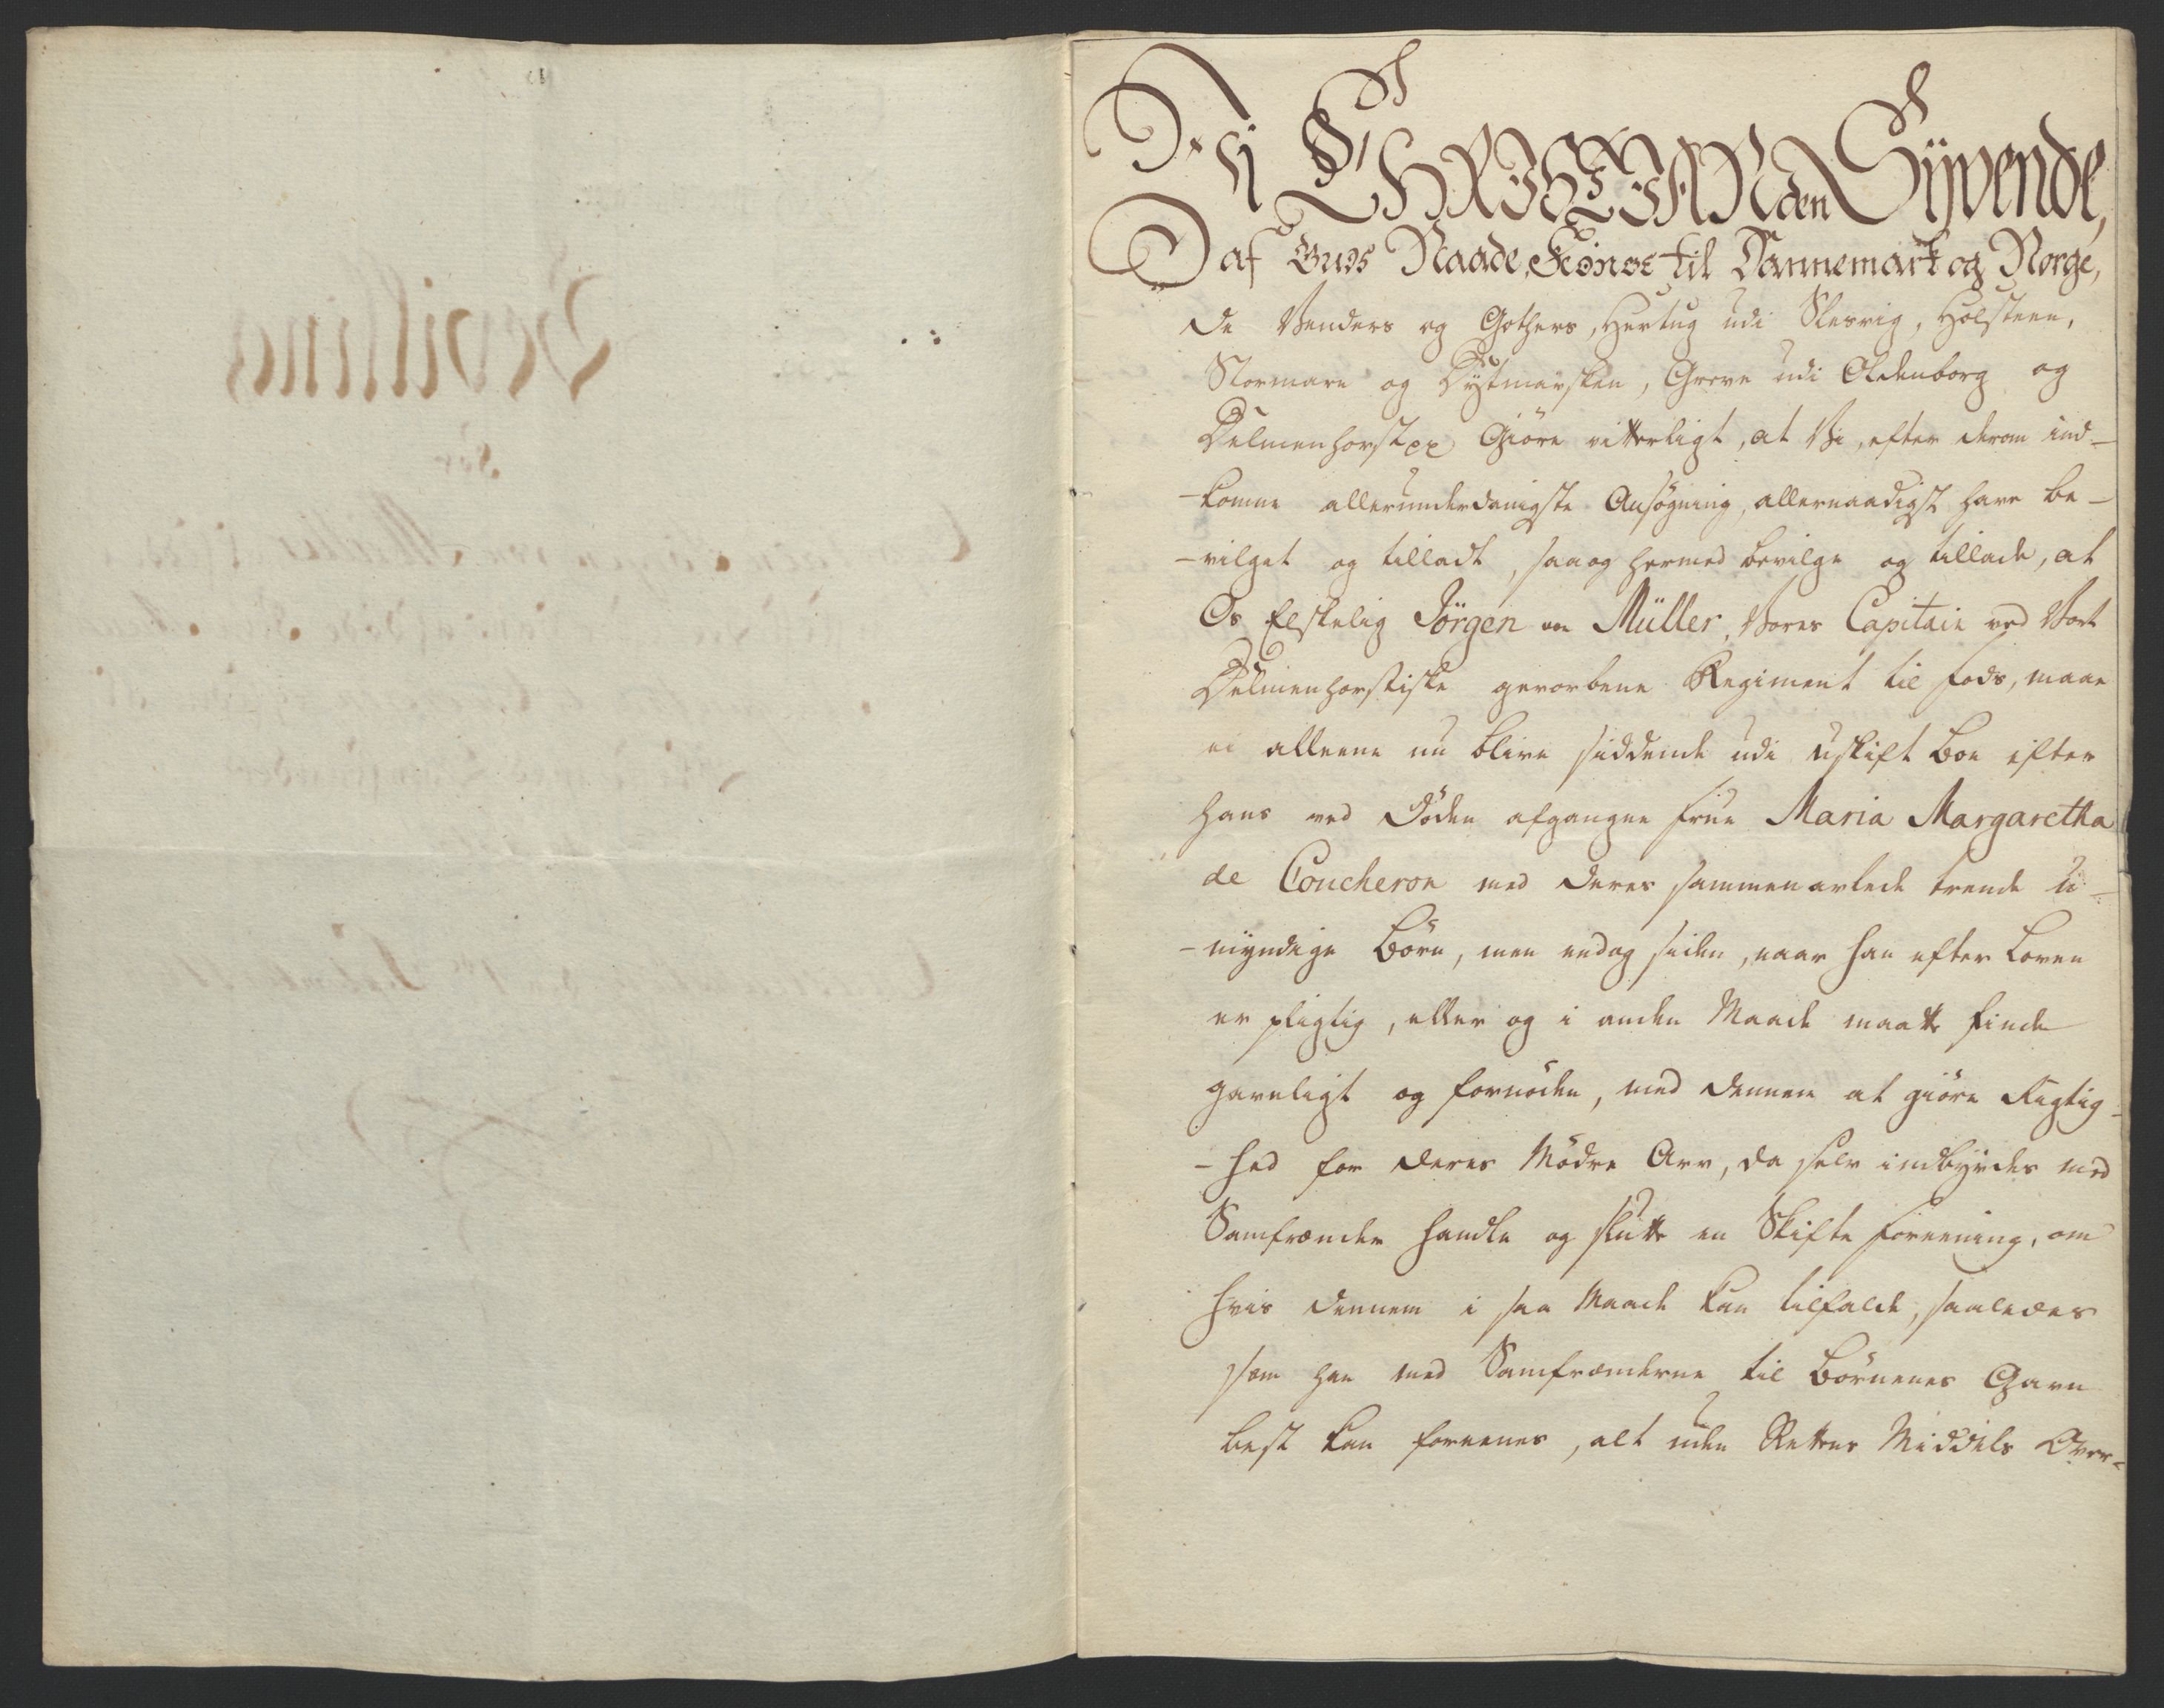 Vi CHRISTIAN den Syvende,
af Guds Naade, Konge til Dannemark og Norge,
de Venders og Gothers, Hertug udi Slesvig, Holsteen,
Stormarn og Dytmarsken, Greve udi Oldenborg og
Delmenhorst pp Giöre vitterligt, at Vi, efter derom ind-
-komne allerunderdanigste Ansögning, allernaadigst have be-
-vilget og tilladt, saa og hermed bevilge og tillade, at
Os Elskelig Jörgen von Müller, Vores Capitain ved Vort
Delmenhorstiske gevorbene Regiment til Fods, maae
ei alleene nu blive siddende udi uskift Boe efter
hans ved Döden afgangne Frue Maria Margaretha
de Coucheron med deres sammenavlede trende u-
-myndige Börn, men endog siden, naar han efter Loven
er pligtig, eller og i anden Maade maatte finde
gavnligt og fornöden, med dennem at giöre Rigtig-
-hed for deres Mödre Arv, da selv indbyrdes med
Samfrænder handle og slutte en Skifte Foreening, om
hvis dennem i saa Maade kan tilfalde, saaledes
som han med Samfrænderne til Börnenes Gavn
best kan foreenes, alt uden Rettens Middels Over-